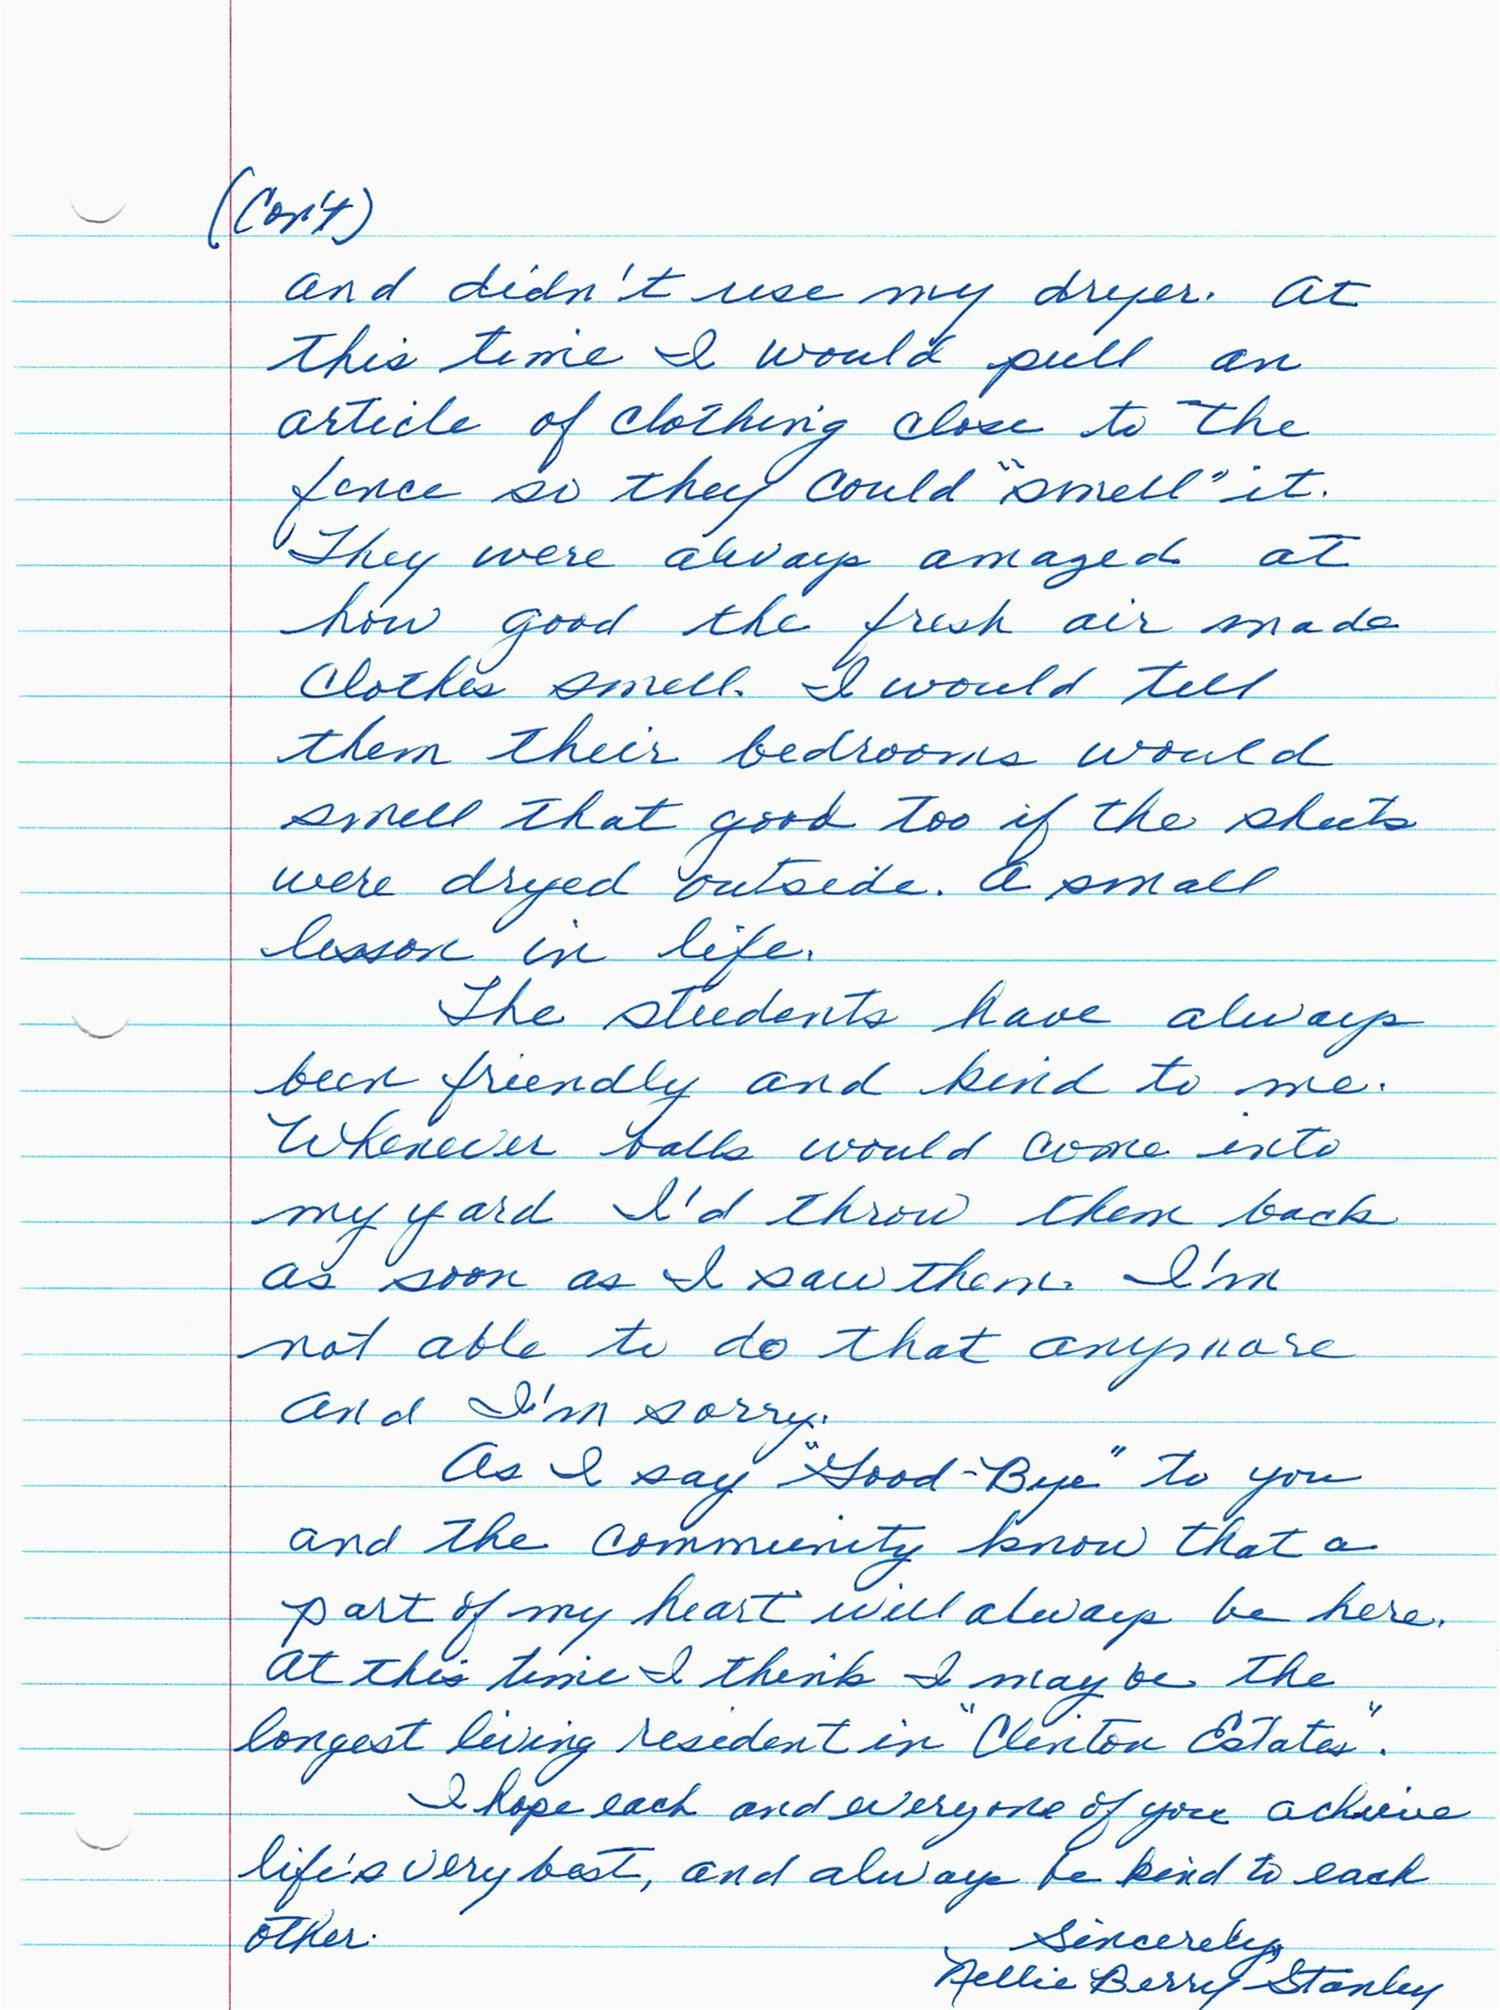 (Con't)
and didn't use my dryer. At
this time I would pull an
article of clothing close to the
fence so they could "smell" it.
They were always amazed at
how good the fresh air made
clothes smell. I would tell
them their bedrooms would
smell that good too if the sheets
were dryed outside. A small
lesson in life.
The students have always
been friendly and kind to me.
Whenever balls would come into
my yard I'd throw them back
as soon as I saw them. I'm
not able to do that anymore
and I'm sorry.
As I say "Good-Bye" to you
and the community know that a
part of my heart will always be here.
At this time I think I may be the
longest living resident in "Clinton Estates".
I hope each and everyone of you achieve
life's very best, and always be kind to each
other.
Sincerely,
Nellie Berry Stanley